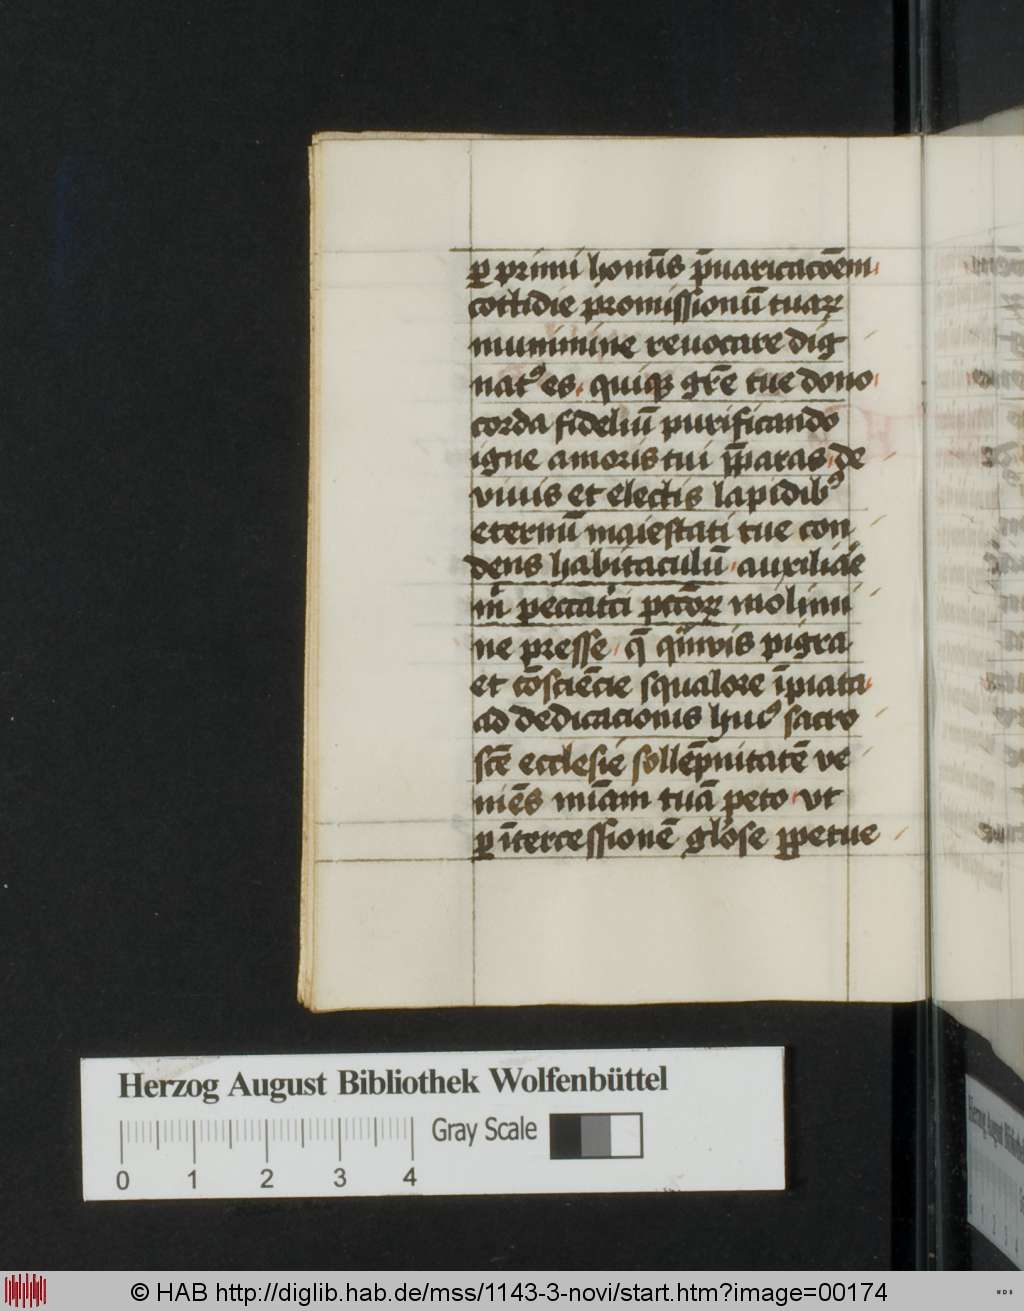 ꝑ primi homīs p̄uaricacōem
cottidie promissionū tuaꝝ
munimine reuocare dig
natꝰ es quiqꝫ gr̄e tue dono
corda fideliū purificando
igne amoris tui p̄paras de
viuis et electis lapidibꝰ
eternū maiestati tue con
dens habitaculū auxiliāe
m̄ peccat'ci pctōꝝ molimi
ne presse q̄ q̄muis pigra
et cōsciēcie squalore īpiata
ad dedicacionis huiꝰ sacro
scē ecclesie sollēpnitatē ve
niēs mīam tuā peto vt
ꝑ ītercessionē glōse ꝑpetue
Herzog August Bibliothek Wolfenbüttel
Gray Scale
0 1 2 3 4
© HAB http://diglib.hab.de/mss/1143-3-novi/start.htm?image=00174